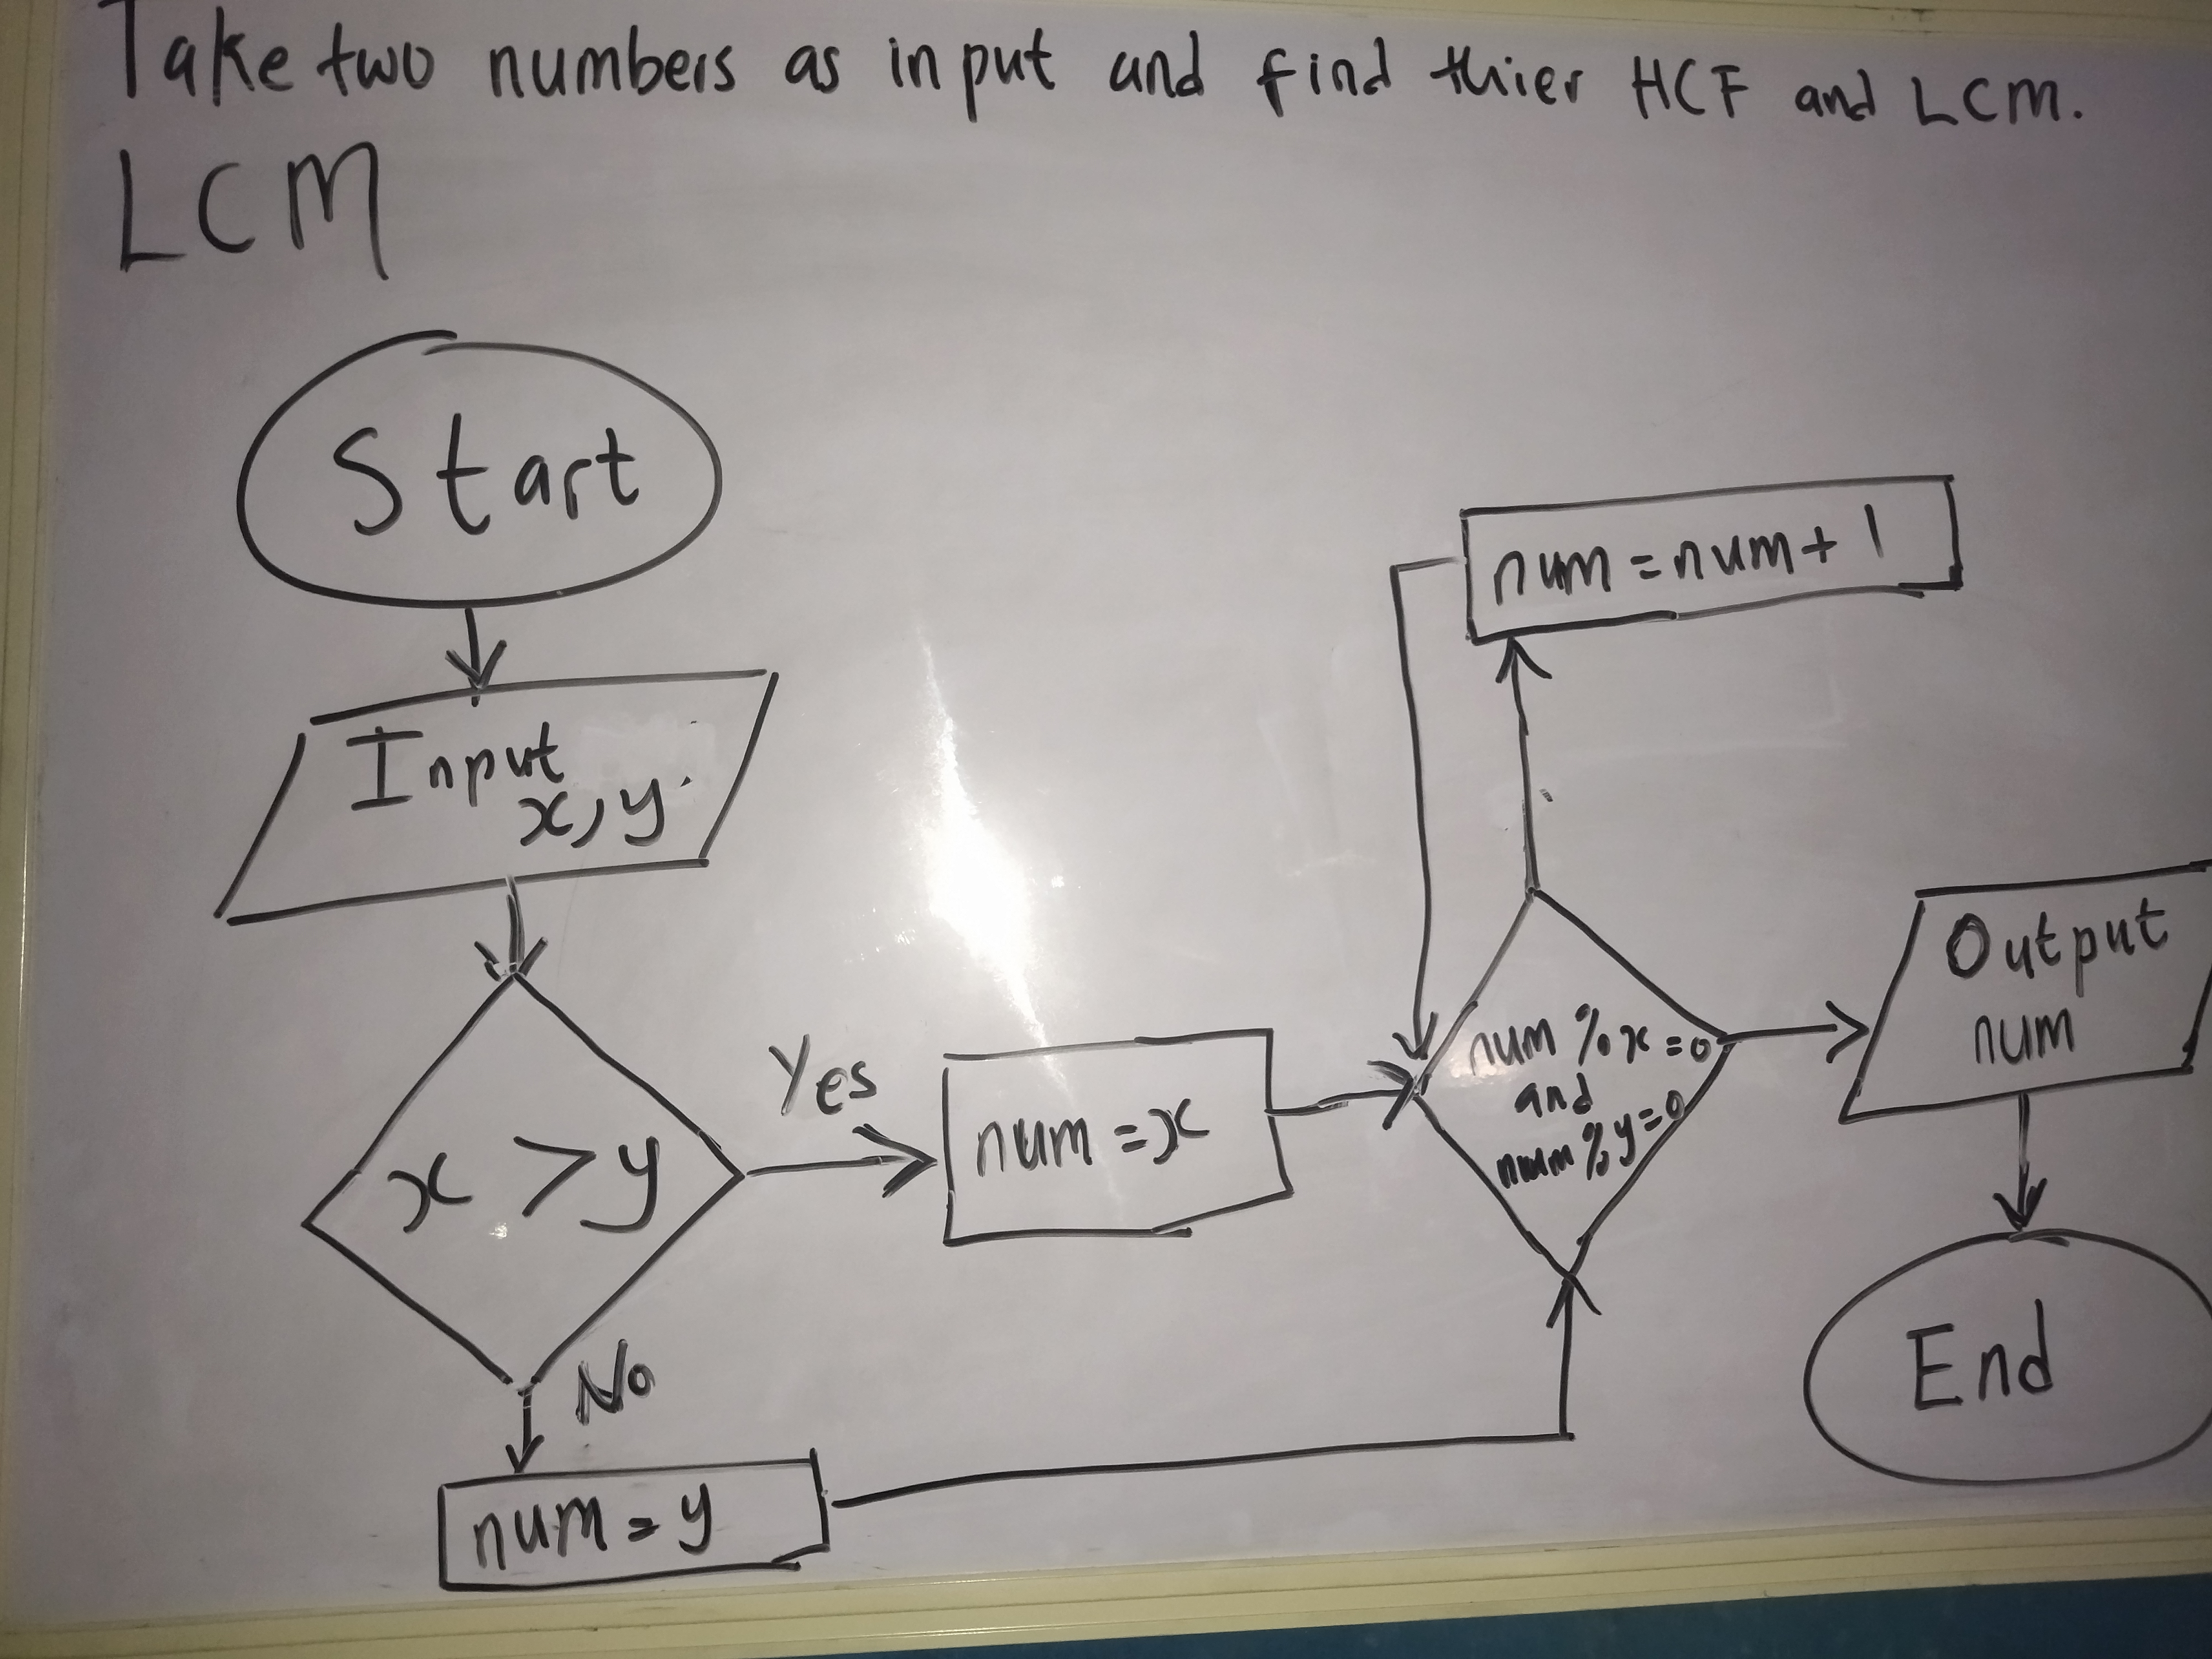 Take two numbers as input and find thier HCF and LCM.
LCM
Start
Input
x,y
x > y
Yes
num = x
No
num = y
num = num + 1
num % x = 0
and
num % y = 0
Output
num
End